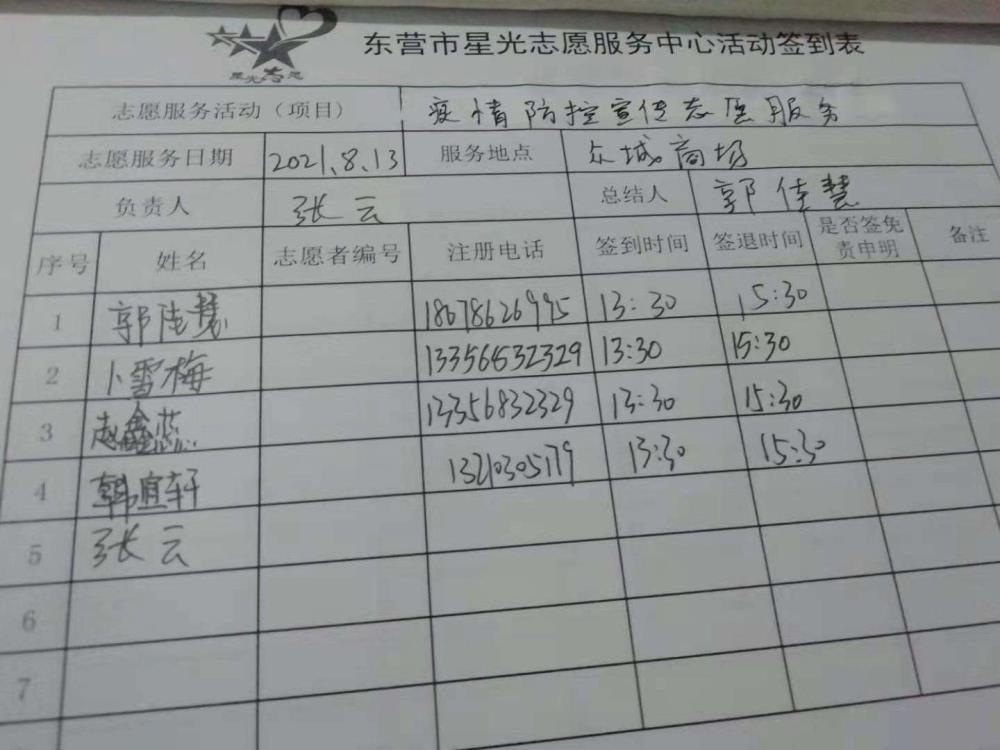 星光志愿
东营市星光志愿服务中心活动签到表
志愿服务活动（项目） 疫情防控宣传志愿服务
志愿服务日期 2021.8.13 服务地点 众城商场
负责人 张云 总结人 郭佳慧
序号 姓名 志愿者编号 注册电话 签到时间 签退时间 是否签免责申明 备注
1 郭佳慧 18678626995 13:30 15:30
2 卜雪梅 13356832329 13:30 15:30
3 赵鑫蕊 13356832329 13:30 15:30
4 韩宜轩 13:30 15:30
5 张云
6
7